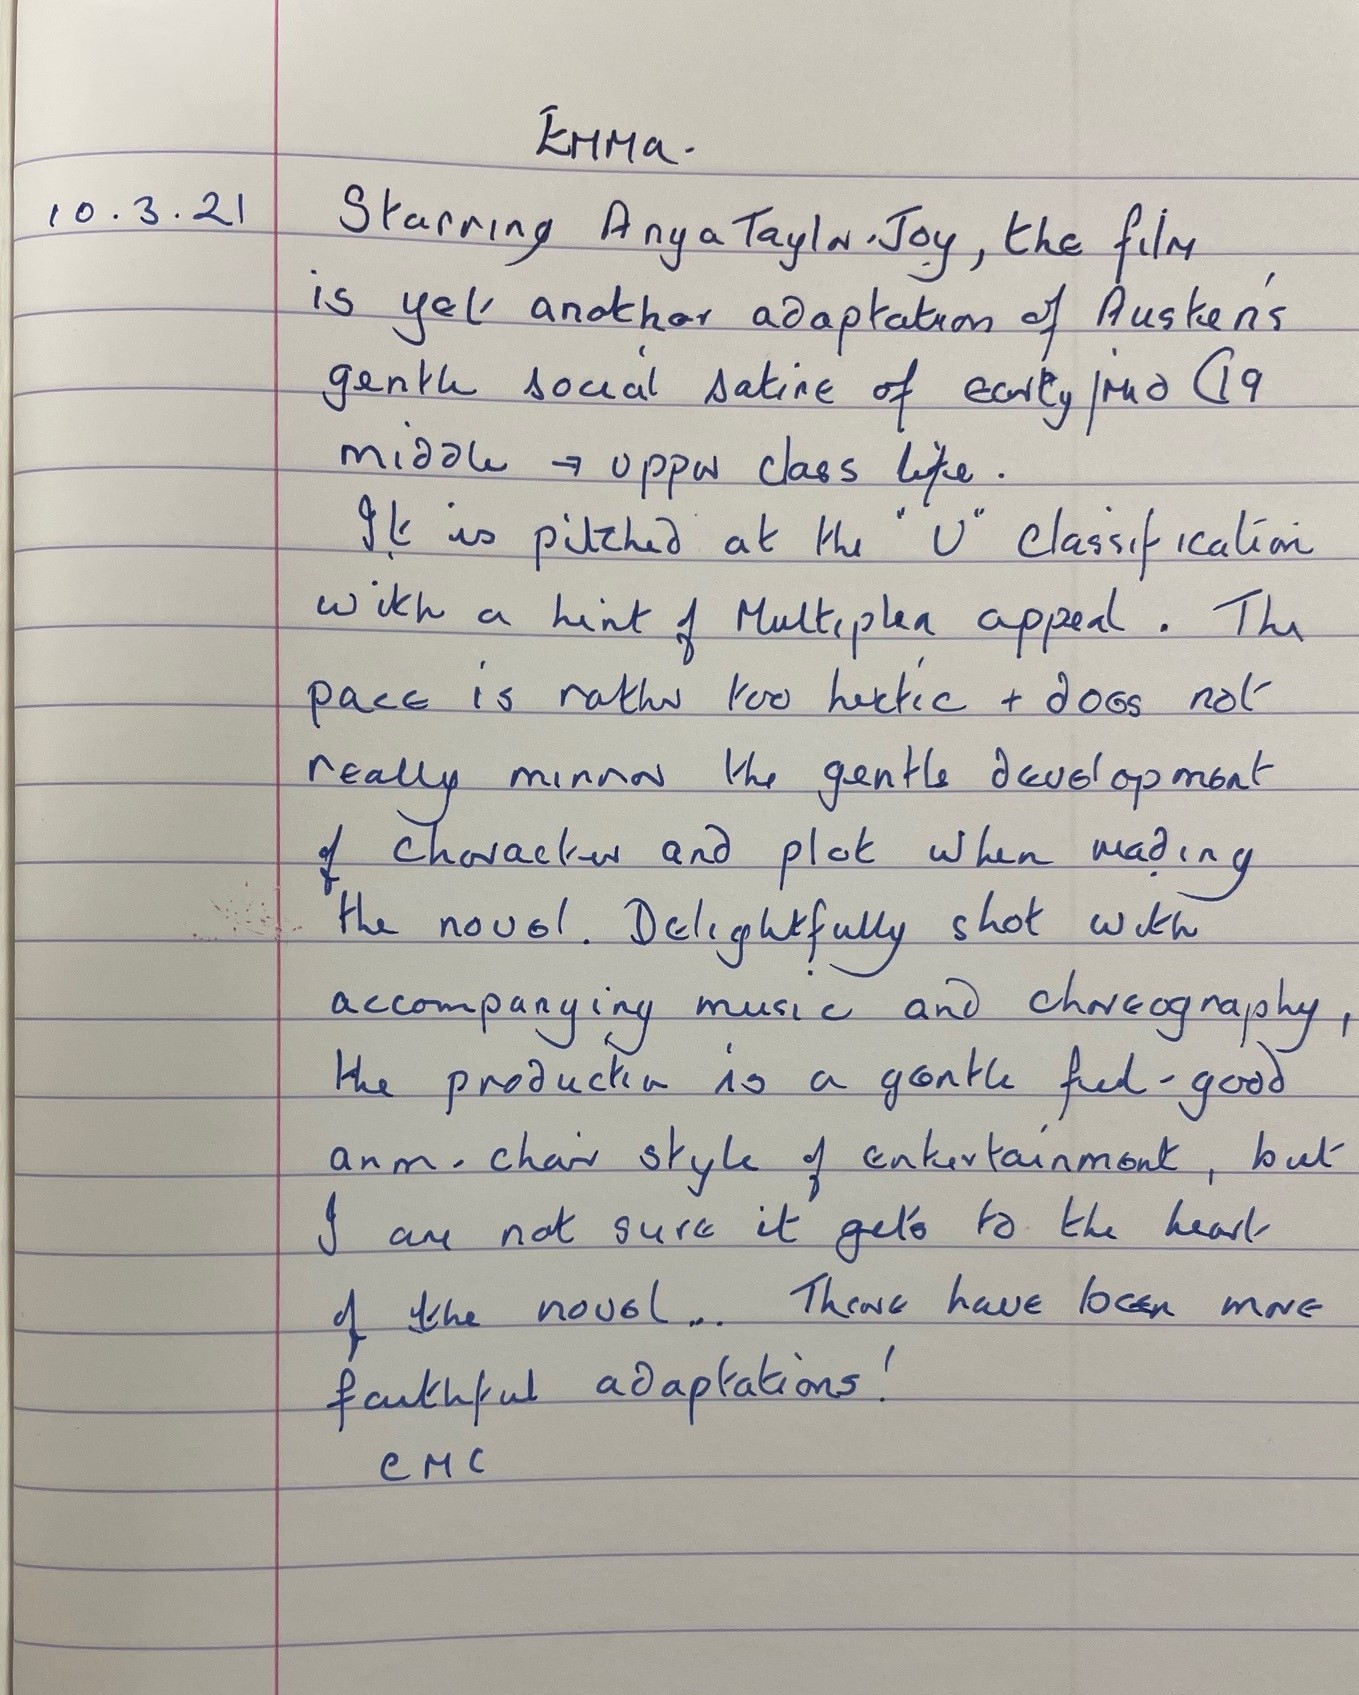 Emma.
10.3.21 Starring Anya Taylor-Joy, the film
is yet another adaptation of Austen's
gentle social satire of early/mid C19
middle → upper class life.
It is pitched at the "U" classification
with a hint of Multiplex appeal. The
pace is rather too hectic + does not
really mirror the gentle development
of character and plot when reading
the novel. Delightfully shot with
accompanying music and choreography,
the production is a gentle feel-good
arm-chair style of entertainment, but
I am not sure it gets to the heart
of the novel... There have been more
faithful adaptations!
CMC